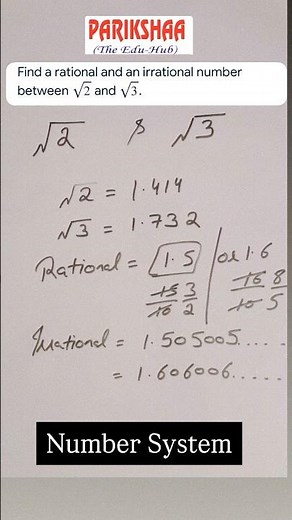 PARIKSHAA
(The Edu-Hub)
Find a rational and an irrational number
between √2 and √3.
√2 & √3
√2 = 1.414
√3 = 1.732
Rational = 1.5 | or 1.6
15/10 3/2 | 16/10 8/5
Irrational = 1.505005.....
= 1.606006.....
Number System